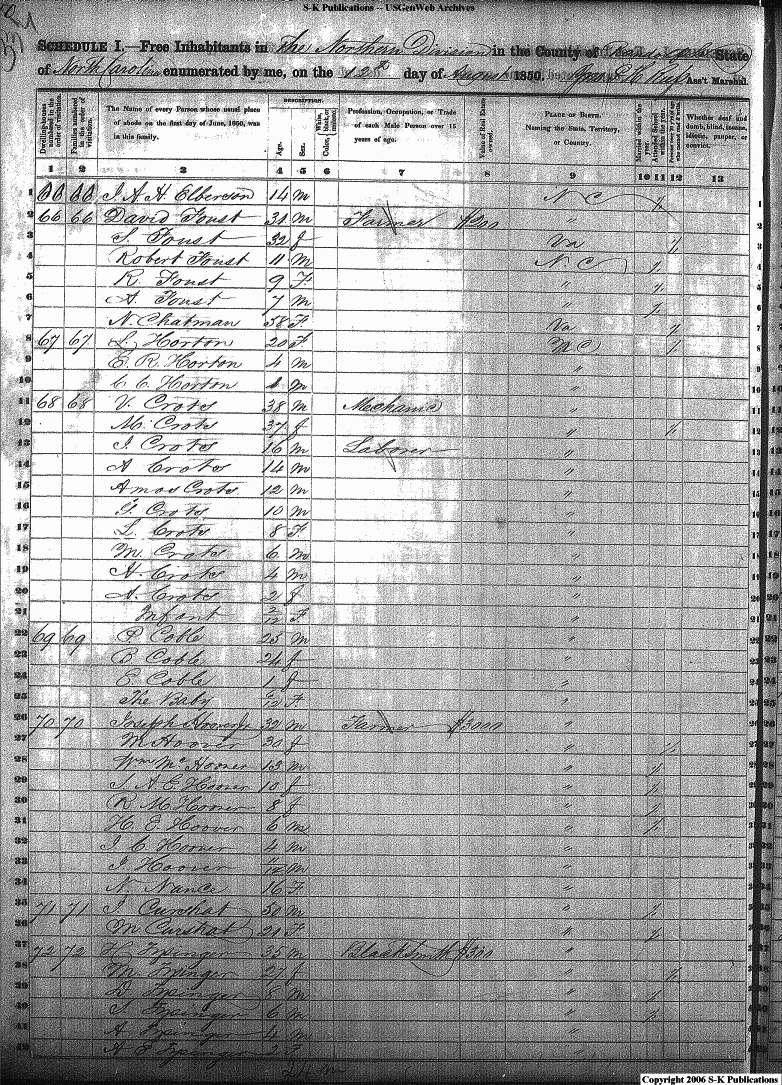 S-K Publications -- USGenWeb Archives
SCHEDULE I.—Free Inhabitants in The Northern Division in the County of Randolph State
of North Carolina enumerated by me, on the 12th day of August 1850. Ass't Marshal.
Dwelling-houses numbered in the order of visitation.
Families numbered in the order of visitation.
The Name of every Person whose usual place of abode on the first day of June, 1850, was in this family.
DESCRIPTION.
Age.
Sex.
White, black, or mulatto.
Color,
Profession, Occupation, or Trade of each Male Person over 15 years of age.
Value of Real Estate owned.
PLACE OF BIRTH. Naming the State, Territory, or Country.
Married within the year.
Attended School within the year.
Whether deaf and dumb, blind, insane, idiotic, pauper, or convict.
1 2 3 4 5 6 7 8 9 10 11 12 13
1 66 66 J A H Elberson 14 m N C /
2 66 66 David Foust 31 m Farmer $200 "
3 S. Foust 32 f Va /
4 Robert Foust 11 m N. C. /
5 R. Foust 9 F " /
6 A Foust 7 m " /
7 N. Chatman 58 F Va /
8 67 67 S. Horton 20 F N C /
9 E. R. Horton 4 m "
10 C C. Horton 1 m "
11 68 68 V. Crots 38 m Mechanic "
12 M. Crots 37 f " /
13 J Crots 16 m Laborer "
14 A Crots 14 m "
15 Amos Crots 12 m "
16 G. Crots 10 m "
17 L. Crots 8 F "
18 M. Crots 6 m "
19 H. Crots 4 m "
20 A. Crots 2 f "
21 Infant 2/12 F "
22 69 69 P. Coble 25 m "
23 B Coble 24 f "
24 E Coble 1 f "
25 The Baby 6/12 F "
26 70 70 Joseph Hoover 32 m Farmer $3000 "
27 M Hoover 30 f " /
28 Wm Mc Hoover 13 m " /
29 S. A. E. Hoover 10 f " /
30 R M Hoover 8 f " /
31 H. E. Hoover 6 m " /
32 J. C Hoover 4 m "
33 J. Hoover 11/12 m "
34 N. Nance 16 F "
35 71 71 J Curshat 50 m " /
36 M Curshat 21 F " /
37 72 72 H Fpinger 35 m Blacksmith $300 "
38 M Fpinger 27 f " /
39 D Fpinger 8 m " /
40 S Fpinger 6 m " /
41 A Fpinger 4 m "
42 A E Fpinger 2 F "
24 m
Copyright 2006 S-K Publications